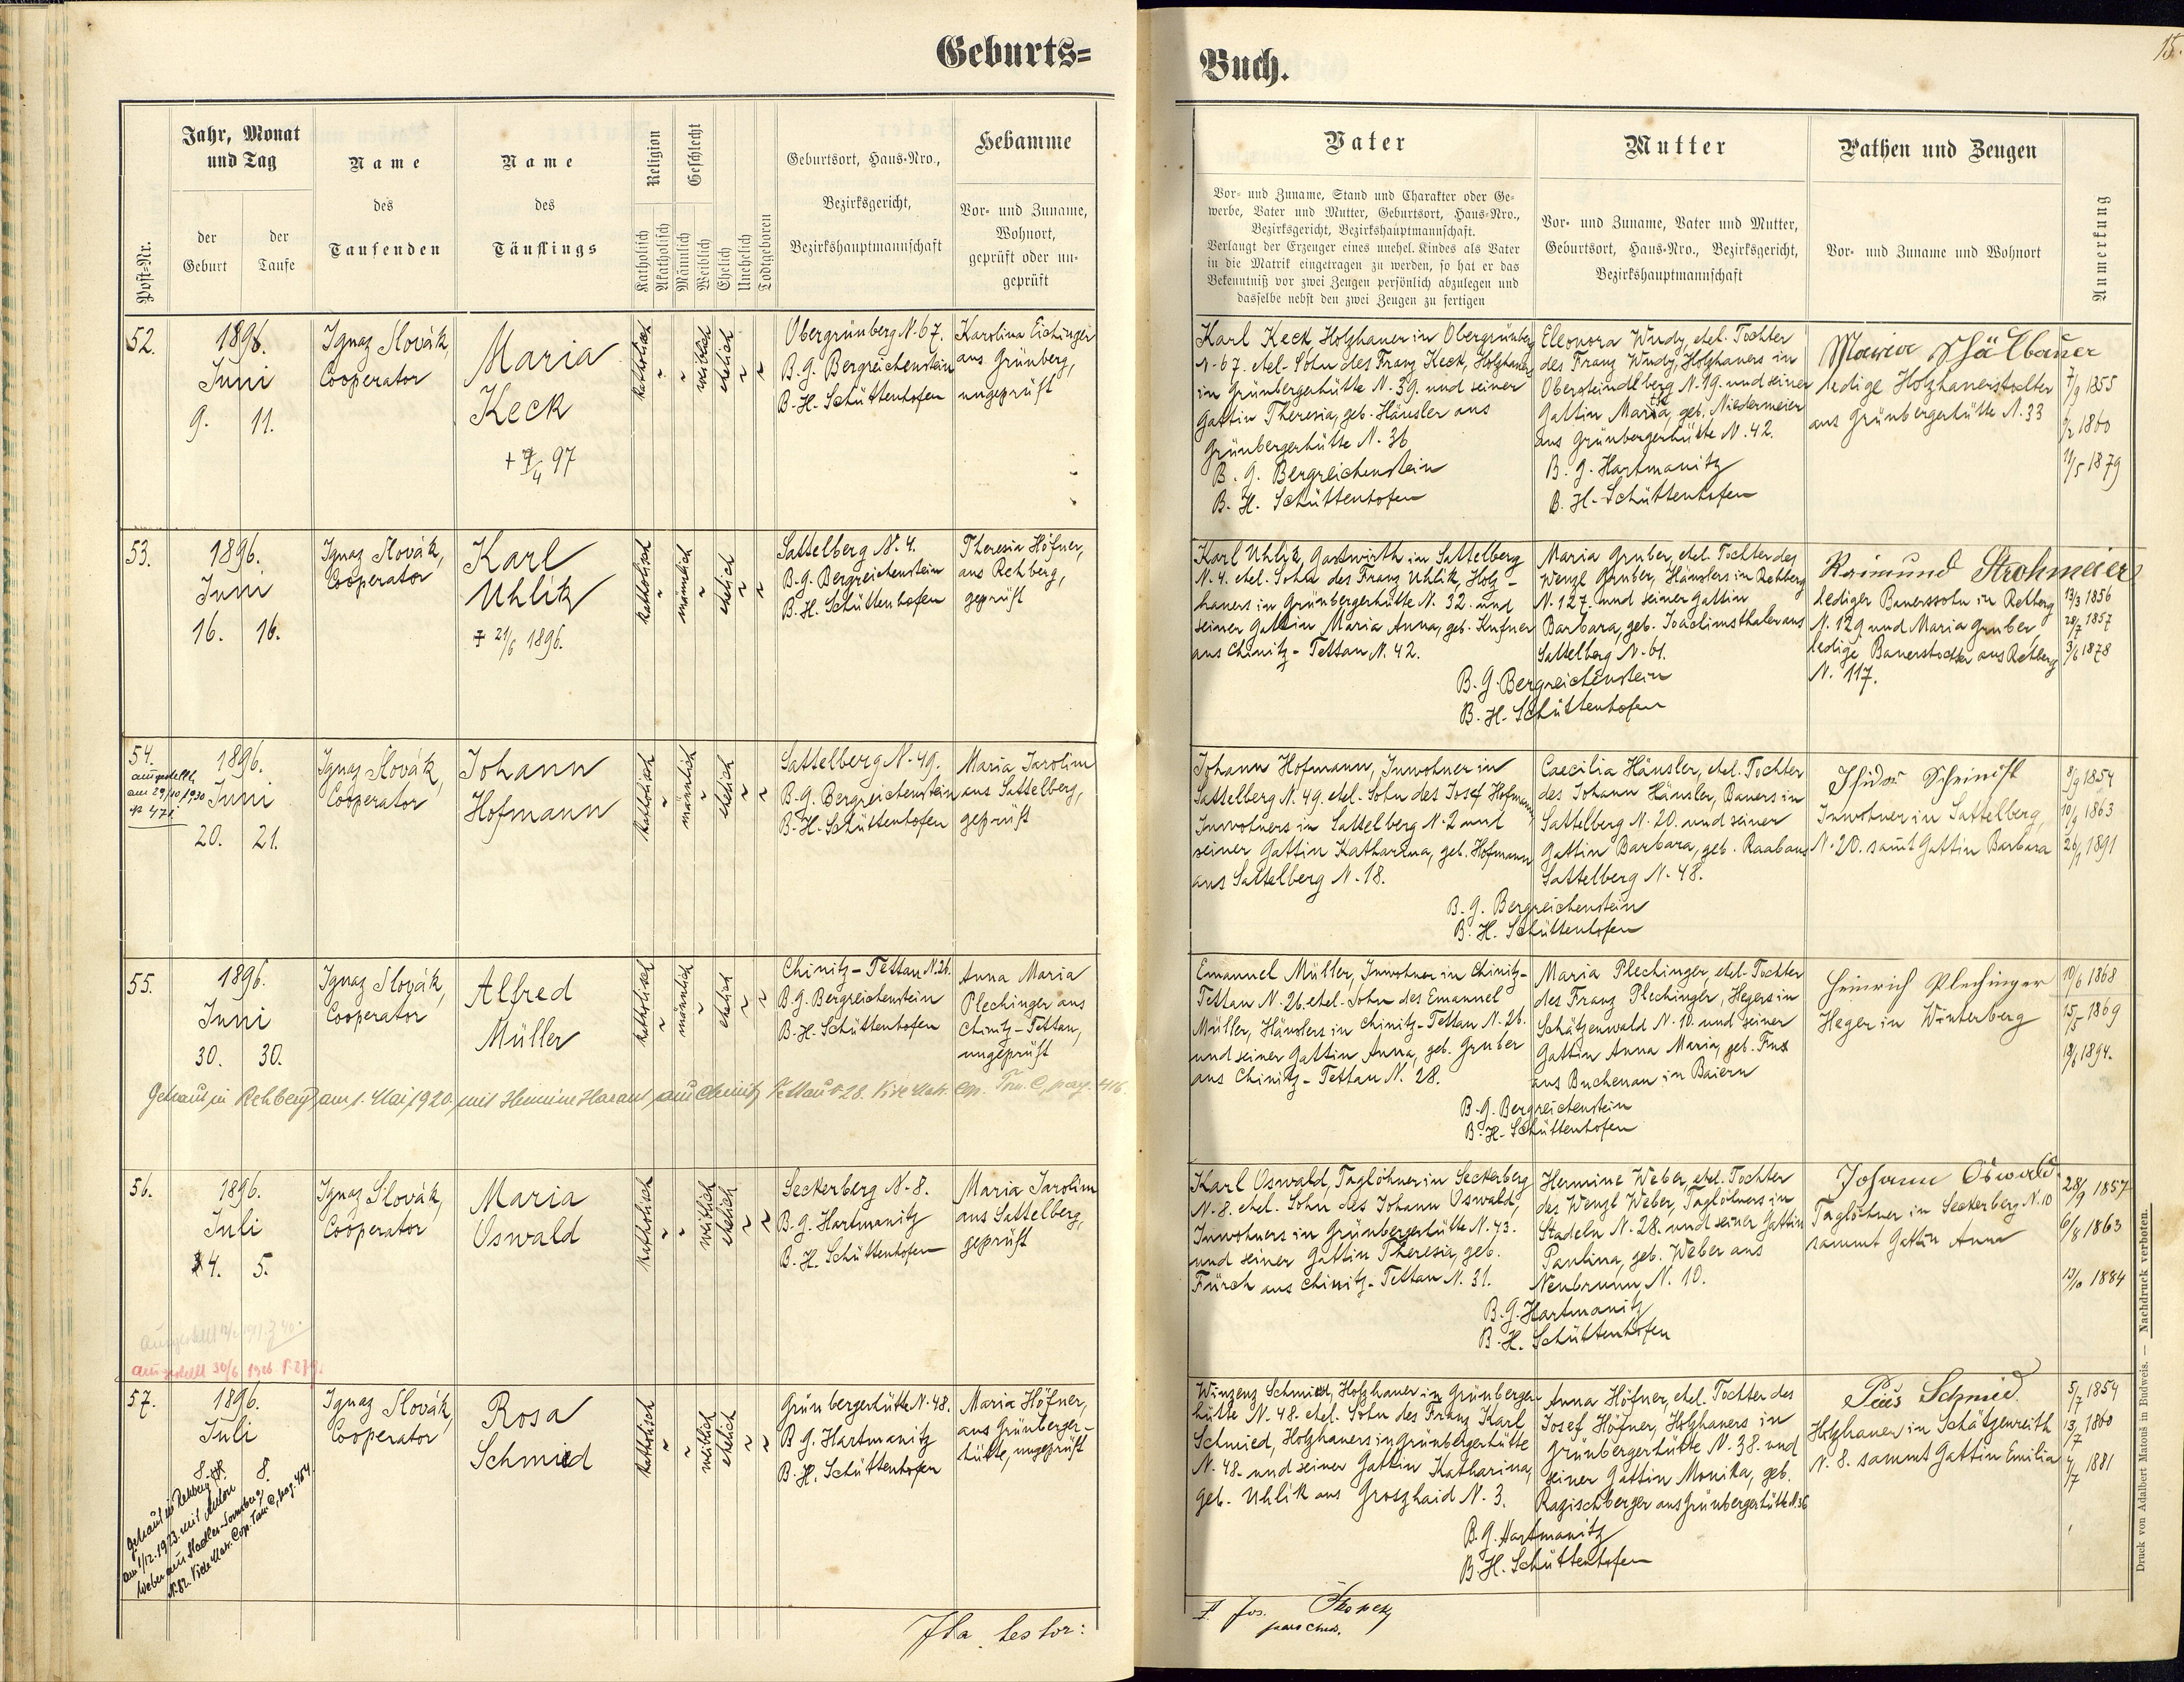 Geburts=
Buch.
15.
Post-Nr.
Jahr, Monat
und Tag
der
Geburt
der
Taufe
Name
des
Taufenden
Name
des
Täuflings
Religion
Katholisch
Akatholisch
Geschlecht
Männlich
Weiblich
Ehelich
Unehelich
Todtgeboren
Geburtsort, Haus-Nro.,
Bezirksgericht,
Bezirkshauptmannschaft
Hebamme
Vor- und Zuname,
Wohnort,
geprüft oder un-
geprüft
Vater
Vor- und Zuname, Stand und Charakter oder Ge-
werbe, Vater und Mutter, Geburtsort, Haus-Nro.,
Bezirksgericht, Bezirkshauptmannschaft.
Verlangt der Erzeuger eines unehel. Kindes als Vater
in die Matrik eingetragen zu werden, so hat er das
Bekenntniß vor zwei Zeugen persönlich abzulegen und
dasselbe nebst den zwei Zeugen zu fertigen
Mutter
Vor- und Zuname, Vater und Mutter,
Geburtsort, Haus-Nro., Bezirksgericht,
Bezirkshauptmannschaft
Pathen und Zeugen
Vor- und Zuname und Wohnort
Anmerkung
52.
1896.
Juni
9. 11.
Ignaz Slovák,
Cooperator
Maria
Keck
+ 7/4 97
katholisch
weiblich
ehelich
Obergrünberg N. 67.
B. G. Bergreichenstein
B. H. Schüttenhofen
Karolina Eichinger
aus Grünberg,
ungeprüft
Karl Keck, Holzhauer in Obergrünberg
N. 67. ehel. Sohn des Franz Keck, Holzhauers
in Grünbergerhütte N. 39. und seiner
Gattin Theresia, geb. Häusler aus
Grünbergerhütte N. 36
B. G. Bergreichenstein
B. H. Schüttenhofen
Eleonora Wudy, ehel. Tochter
des Franz Wudy, Holzhauers in
Obersteindlberg N. 19. und seiner
Gattin Maria, geb. Niedermeier
aus Grünbergerhütte N. 42.
B. G. Hartmanitz
B. H. Schüttenhofen
Maria Schälbauer
ledige Holzhauerstochter
aus Grünbergerhütte N. 33
7/9 1855
1860
11/5 1879
53.
1896.
Juni
16. 16.
Ignaz Slovák,
Cooperator
Karl
Uhlik
+ 21/6 1896.
katholisch
männlich
ehelich
Sattelberg N. 4.
B. G. Bergreichenstein
B. H. Schüttenhofen
Theresia Höfner,
aus Rehberg,
geprüft
Karl Uhlik, Gastwirth in Sattelberg
N. 4. ehel. Sohn des Franz Uhlik, Holz-
hauers in Grünbergerhütte N. 32. und
seiner Gattin Maria Anna, geb. Kufner
aus Chinitz-Tettau N. 42.
Maria Gruber, ehel. Tochter des
Wenzl Gruber, Häuslers in Rehberg
N. 127. und seiner Gattin
Barbara, geb. Joachimsthaler aus
Sattelberg N. 61.
B. G. Bergreichenstein
B. H. Schüttenhofen
Raimund Strohmeier
lediger Bauerssohn in Rehberg
N. 129 und Maria Gruber,
ledige Bauerstochter aus Rehberg
N. 117.
13/3 1856
20/7 1857
3/6 1878
54.
ausgestellt
am 29/10 1930
1896.
Juni
20. 21.
Ignaz Slovák,
Cooperator
Johann
Hofmann
katholisch
männlich
ehelich
Sattelberg N. 49.
B. G. Bergreichenstein
B. H. Schüttenhofen
Maria Jarolim
aus Sattelberg,
geprüft
Johann Hofmann, Inwohner in
Sattelberg N. 49. ehel. Sohn des Josef Hofmann,
Inwohners in Sattelberg N. 2 und
seiner Gattin Katharina, geb. Hofmann
aus Sattelberg N. 18.
Caecilia Häusler, ehel. Tochter
des Johann Häusler, Bauers in
Sattelberg N. 20. und seiner
Gattin Barbara, geb. Raab aus
Sattelberg N. 48.
B. G. Bergreichenstein
B. H. Schüttenhofen
Isidor
Inwohner in Sattelberg,
N. 20. sammt Gattin Barbara
8/9 1854
10/9 1863
26/1 1891
55.
1896.
Juni
30. 30.
Ignaz Slovák,
Cooperator
Alfred
Müller
katholisch
männlich
ehelich
Chinitz-Tettau N. 26.
B. G. Bergreichenstein
B. H. Schüttenhofen
Anna Maria
Plechinger aus
Chinitz-Tettau,
ungeprüft
Emanuel Müller, Inwohner in Chinitz-
Tettau N. 26. ehel. Sohn des Emanuel
Müller, Häuslers in Chinitz-Tettau N. 26.
und seiner Gattin Anna, geb. Gruber
aus Chinitz-Tettau N. 28.
Maria Plechinger, ehel. Tochter
des Franz Plechinger, Hegers in
Schätzenwald N. 10. und seiner
Gattin Anna Maria, geb. Fux
aus Buchenau in Baiern
B. G. Bergreichenstein
B. H. Schüttenhofen
Heinrich Plechinger
Heger in Winterberg
10/6 1868
15/5 1869
18/6 1894.
Getraut in Rehberg am 1. Mai 1920, mit Hermine aus Chinitz Tettau N. 28. Vide Matr. Cop. Tom. C, pag. 416.
56.
1896.
Juli
4. 5.
Ignaz Slovák,
Cooperator
Maria
Oswald
katholisch
weiblich
ehelich
Seckerberg N. 8.
B. G. Hartmanitz
B. H. Schüttenhofen
Maria Jarolim
aus Sattelberg,
geprüft
Karl Oswald, Taglöhner in Seckerberg
N. 8. ehel. Sohn des Johann Oswald,
Inwohners in Grünbergerhütte N. 43.
und seiner Gattin Theresia, geb.
Fürch aus Chinitz-Tettau N. 31.
Hermine Weber, ehel. Tochter
des Wenzl Weber, Taglöhners in
Stadeln N. 28. und seiner Gattin
Paulina, geb. Weber aus
Neubrunn, N. 10.
B. G. Hartmanitz
B. H. Schüttenhofen
Johann Oswald
Taglöhner in Seckerberg N. 10
sammt Gattin Anna
28/9 1857
6/8 1863
13/10 1884
ausgestellt 30/6 1926
57.
1896.
Juli
8. 8.
Ignaz Slovák,
Cooperator
Rosa
Schmied
katholisch
weiblich
ehelich
Grünbergerhütte N. 48.
B. G. Hartmanitz
B. H. Schüttenhofen
Maria Höfner,
aus Grünberger-
hütte, ungeprüft
Winzenz Schmied, Holzhauer in Grünberger-
hütte N. 48. ehel. Sohn des Franz Karl
Schmied, Holzhauers in Grünbergerhütte
N. 48. und seiner Gattin Katharina,
geb. Uhlik aus Groszhaid N. 3.
Anna Höfner, ehel. Tochter des
Josef Höfner, Holzhauers in
Grünbergerhütte N. 38. und
seiner Gattin Monika, geb.
Razischberger aus Grünbergerhütte N. 36
B. G. Hartmanitz
B. H. Schüttenhofen
Pius Schmied
Holzhauer in Schätzenreith
N. 8. sammt Gattin Emilia
5/7 1854
13/7 1860
4/7 1881
Getraut in Rehberg
am 1/12. 1923. mit Anton
Weber aus Stadler
N. 82. Vide Matr. Cop. Tom. C, pag. 464.
Ita testor:
Jos.
parochus.
Druck von Adalbert Matouš in Budweis. — Nachdruck verboten.